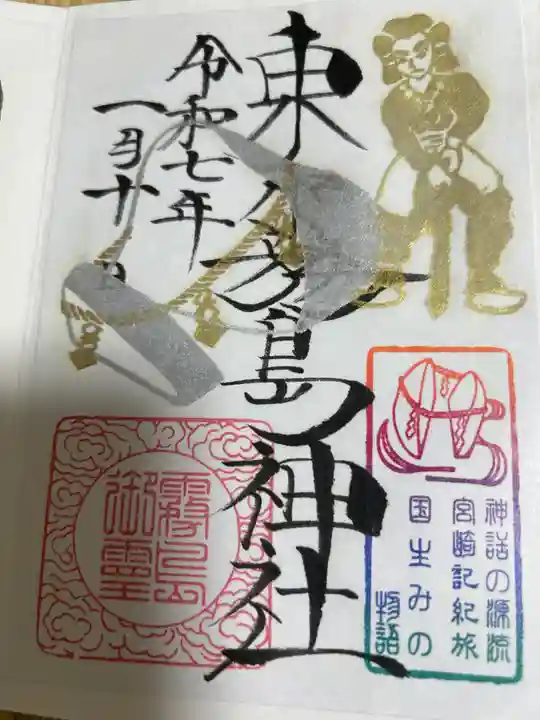 東霧島神社
令和七年
一月十
神話の源流
宮崎記紀旅
国生みの
物語
霧島
御霊